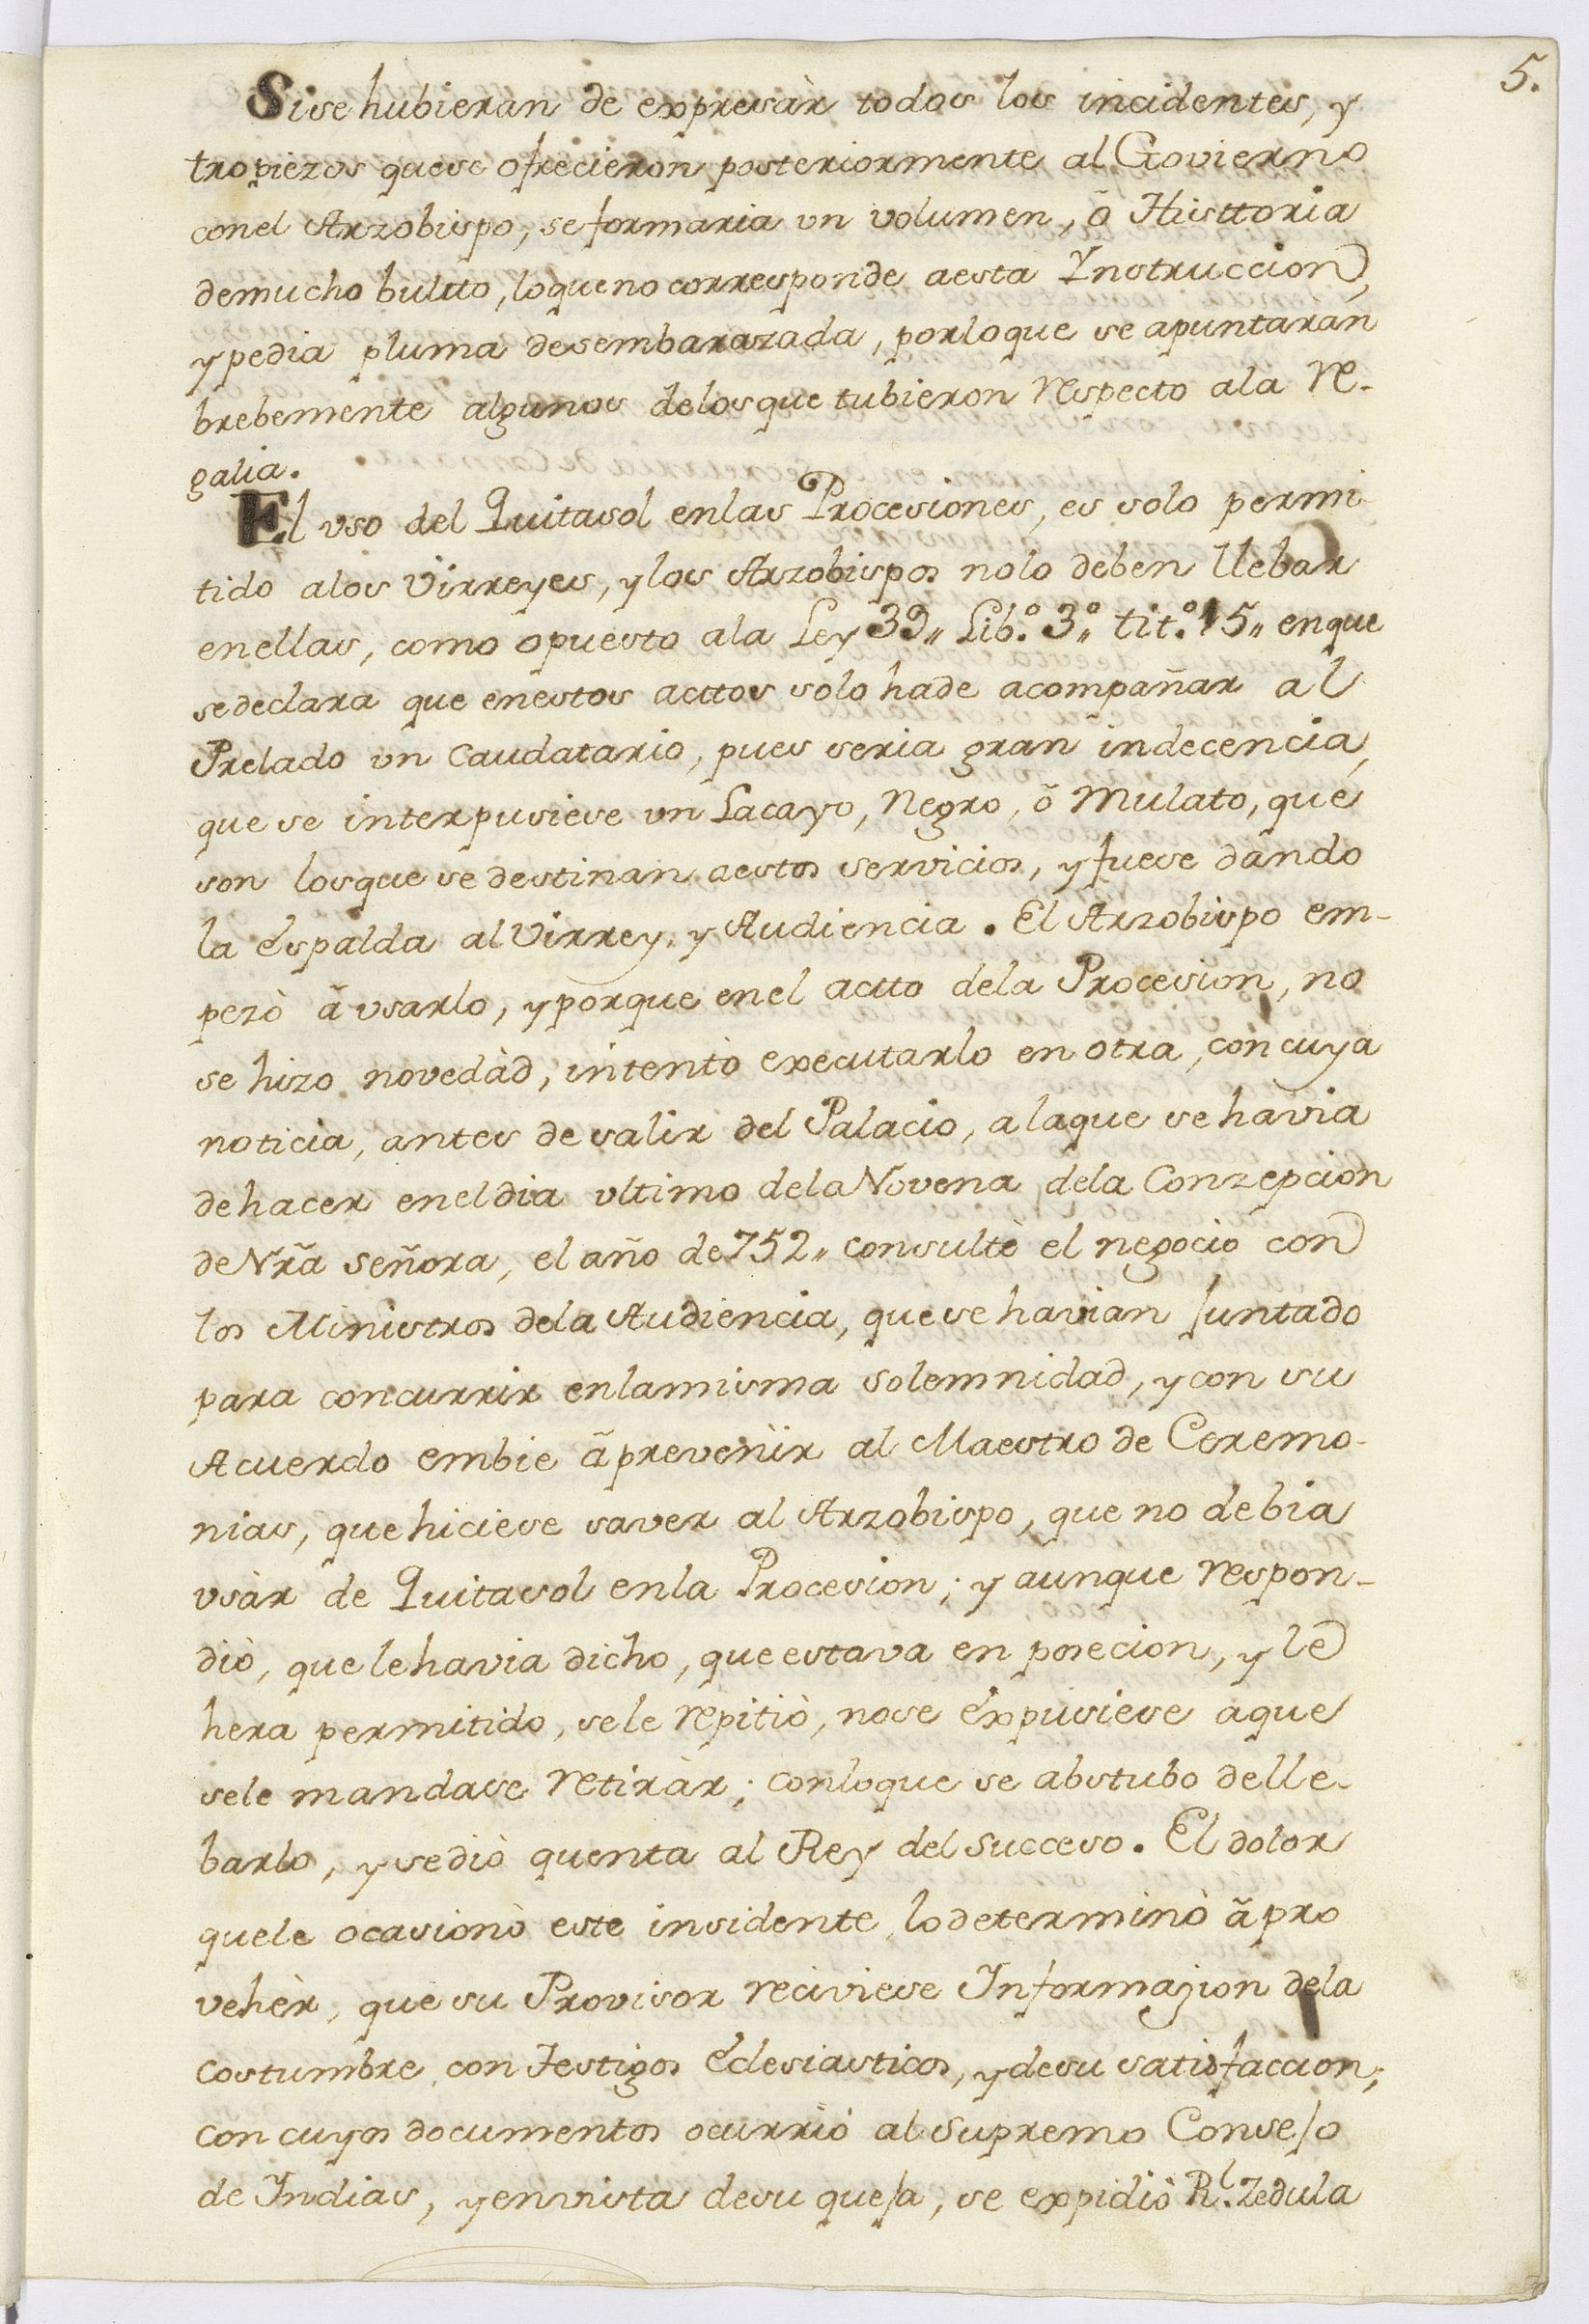 5.
Si se hubieran de expresàr todos los incidentes, y
tropiezos que se ofrecieron posteriormente al Govierno
con el Arzobispo, se formaria un volumen, õ Histtoria
de mucho bultto, lo que no corresponde a esta Ynstruccion,
y pedia pluma desembarazada, por lo que se apuntaràn
brebemente algunos de los que tubieron respecto a la re-
galia.
El uso del Quitasol en las Procesiones, es solo permi
tido a los Virreyes, y los Arzobispos no lo deben llebar
en ellas, como opuesto a la Ley 39,, Lib.º 3.º,, tit.º 15,, en que
se declara que en estos acttos solo ha de acompañar al
Prelado un Caudatario, pues seria gran indecencia,
que se interpusiese un Lacayo, Negro, õ Mulato, que
son los que se destinan a estos servicios, y fuese dando
la espalda al Virrey, y Audiencia. El Arzobispo em-
pezò ã usarlo, y porque en el actto de la Procesion, no
se hizo novedàd, intentò executarlo en otra, con cuya
noticia, antes de salir del Palacio, a la que se havia
de hacer en el dia ultimo de la Novena de la Conzepcion
de Nrã Señora, el año de 752,, consultè el negocio con
los Ministros de la Audiencia, que se havian Juntado
para concurrir en la misma solemnidad, y con su
Acuerdo embie ã prevenir al Maestro de Ceremo-
nias, que hiciese saver al Arzobispo, que no debia
usàr de Quitasol en la Procesion; y aunque respon-
diò, que le havia dicho, que estava en posecion, y le
hera permitido, se le repitiò, no se expusiese a que
se le mandase retiràr; con lo que se abstubo de lle-
barlo, y se diò quenta al Rey del Succeso. El dolor
que le ocasionò este insidente, lo determinò ã pro
vehèr, que su Provisor reciviese Informazion de la
costumbre con Testigos Eclesiasticos, y de su satisfaccion;
con cuyos documentos ocurriò al Supremo Consejo
de Indias, y en vista de su queja, se expidiò R.l Zedula